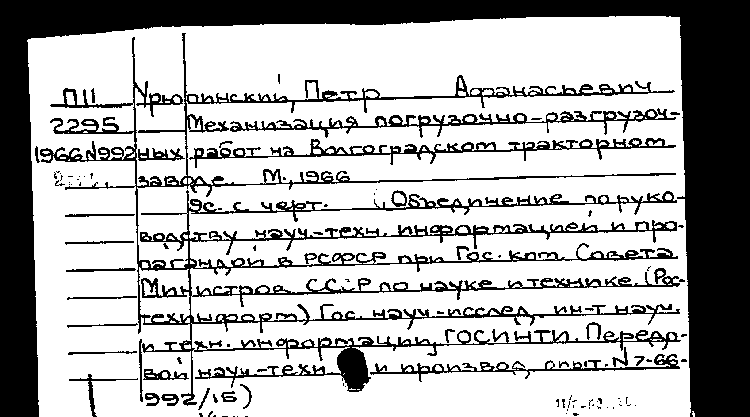 П11 Урюпинский, Петр Афанасьевич
2295 Механизация погрузочно-разгрузоч-
1966 N992 ных работ на Волгоградском тракторном
заводе. М., 1966
9с. с черт. (Объединение по руко-
водству науч.-техн. информацией и про-
пагандой в РСФСР при Гос. ком. Совета
Министров СССР по науке и технике. (Рос-
техинформ) Гос. науч.-исслед. ин-т науч.
и техн. информации, ГОСИНТИ. Передо-
вой науч.-техн. и производ. опыт. N 7-66-
992/15)